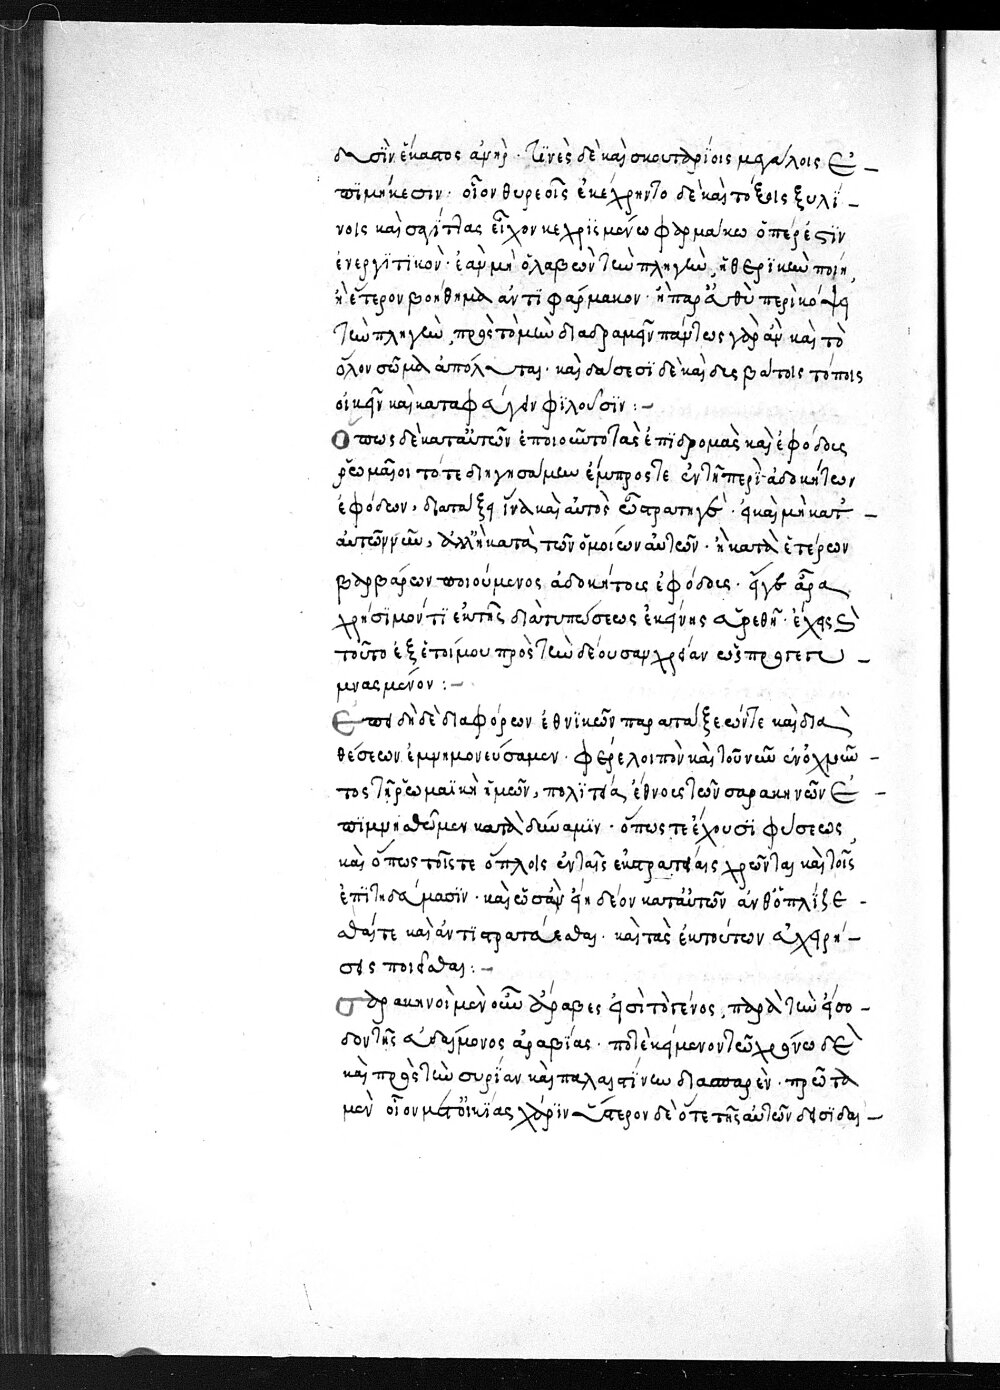 δυσὶν ἕκαστος ἀνήρ· τινὲς δὲ καὶ σκουταρίοις μεγάλοις ἐ–
πιμήκεσιν· οἷον θυρεοῖς ἐκέχρηντο δὲ καὶ τόξοις ξυλί–
νοις καὶ σαγίττας εἶχον κεχρισμένω φαρμάκω ὅπερ ἐστὶν
ἐνεργητικὸν· ἐὰν μὴ ὁ λαβὼν τὴν πληγὴν, ἢ θηρϊακὴν ποίῃ,
ἢ ἕτερον βοήθημα ἀντιφάρμακον· ἢ παρευθὺ περικόψει
τὴν πληγὴν, πρὸς τὸ μὴ διαδραμεῖν πάντως γὰρ ἂν καὶ τὸ
ὅλον σῶμα ἀπόλλυται· καὶ δάσεσι δὲ καὶ δυσβάτοις τόποις
οἰκεῖν καὶ καταφεύγειν φιλοῦσιν:–
Ὅπως δὲ κατ' αὐτῶν ἐποιοῦντο τὰς ἐπιδρομὰς καὶ ἐφόδους
ῥωμαῖοι τότε διηγησάμην ἔμπροσθεν ἐν τῆ περὶ ἀδοκήτων
ἐφόδων, διατάξει ἵνα καὶ αὐτὸς ὦ στρατηγέ· εἰ καὶ μὴ κατ' –
αὐτῶν νῦν, ἀλλ' ἢ κατὰ τῶν ὁμοίων αὐτῶν· ἢ κατὰ ἑτέρων
βαρβάρων ποιούμενος ἀδοκήτους ἐφόδους· εἴ γε ἄρα
χρήσιμόν τι ἐκ τῆς διατυπώσεως ἐκείνης εὑρεθῆ· ἔχεις
τοῦτο ἐξ ἑτοίμου πρὸς τὴν δέουσαν χρείαν ὡς προγεγυ–
μνασμένον:–
Ἐπειδὴ δὲ διαφόρων ἐθνικῶν παρατάξεών τε καὶ δια
θέσεων ἐμνημονεύσαμεν· φέρε λοιπὸν καὶ τοῦ νῦν ἐνοχλοῦν–
τος τῆ ῥωμαϊκῆ ἡμῶν, πολιτεία, ἔθνους τῶν σαρακηνῶν ἐ–
πιμνησθῶμεν κατὰ δύναμιν· ὅπως τε ἔχουσι φύσεως,
καὶ ὅπως τοῖς τε ὅπλοις ἐν ταῖς ἐκστρατείαις χρῶνται καὶ τοῖς
ἐπιτηδεύμασιν· καὶ ὡς ἂν εἴη δέον κατ' αὐτῶν ἀνθοπλίζε–
σθαί τε καὶ ἀντιστρατεύεσθαι· καὶ τὰς ἐκ τούτων ἐγχειρή–
σεις ποιεῖσθαι:–
Σαρακηνοὶ μὲν οὖν ἄραβες εἰσὶ τὸ γένος, παρὰ τὴν εἴσο–
δον τῆς εὐδαίμονος ἀραβίας· ποτὲ κείμενοι τῶ χρόνω δὲ
καὶ πρὸς τὴν συρίαν καὶ παλαιστίνην διασπαρὲν· πρῶτα
μὲν οἷον μετοικίας χάριν ὕστερον δὲ ὅτε τῆς αὐτῶν δυσιδαι–